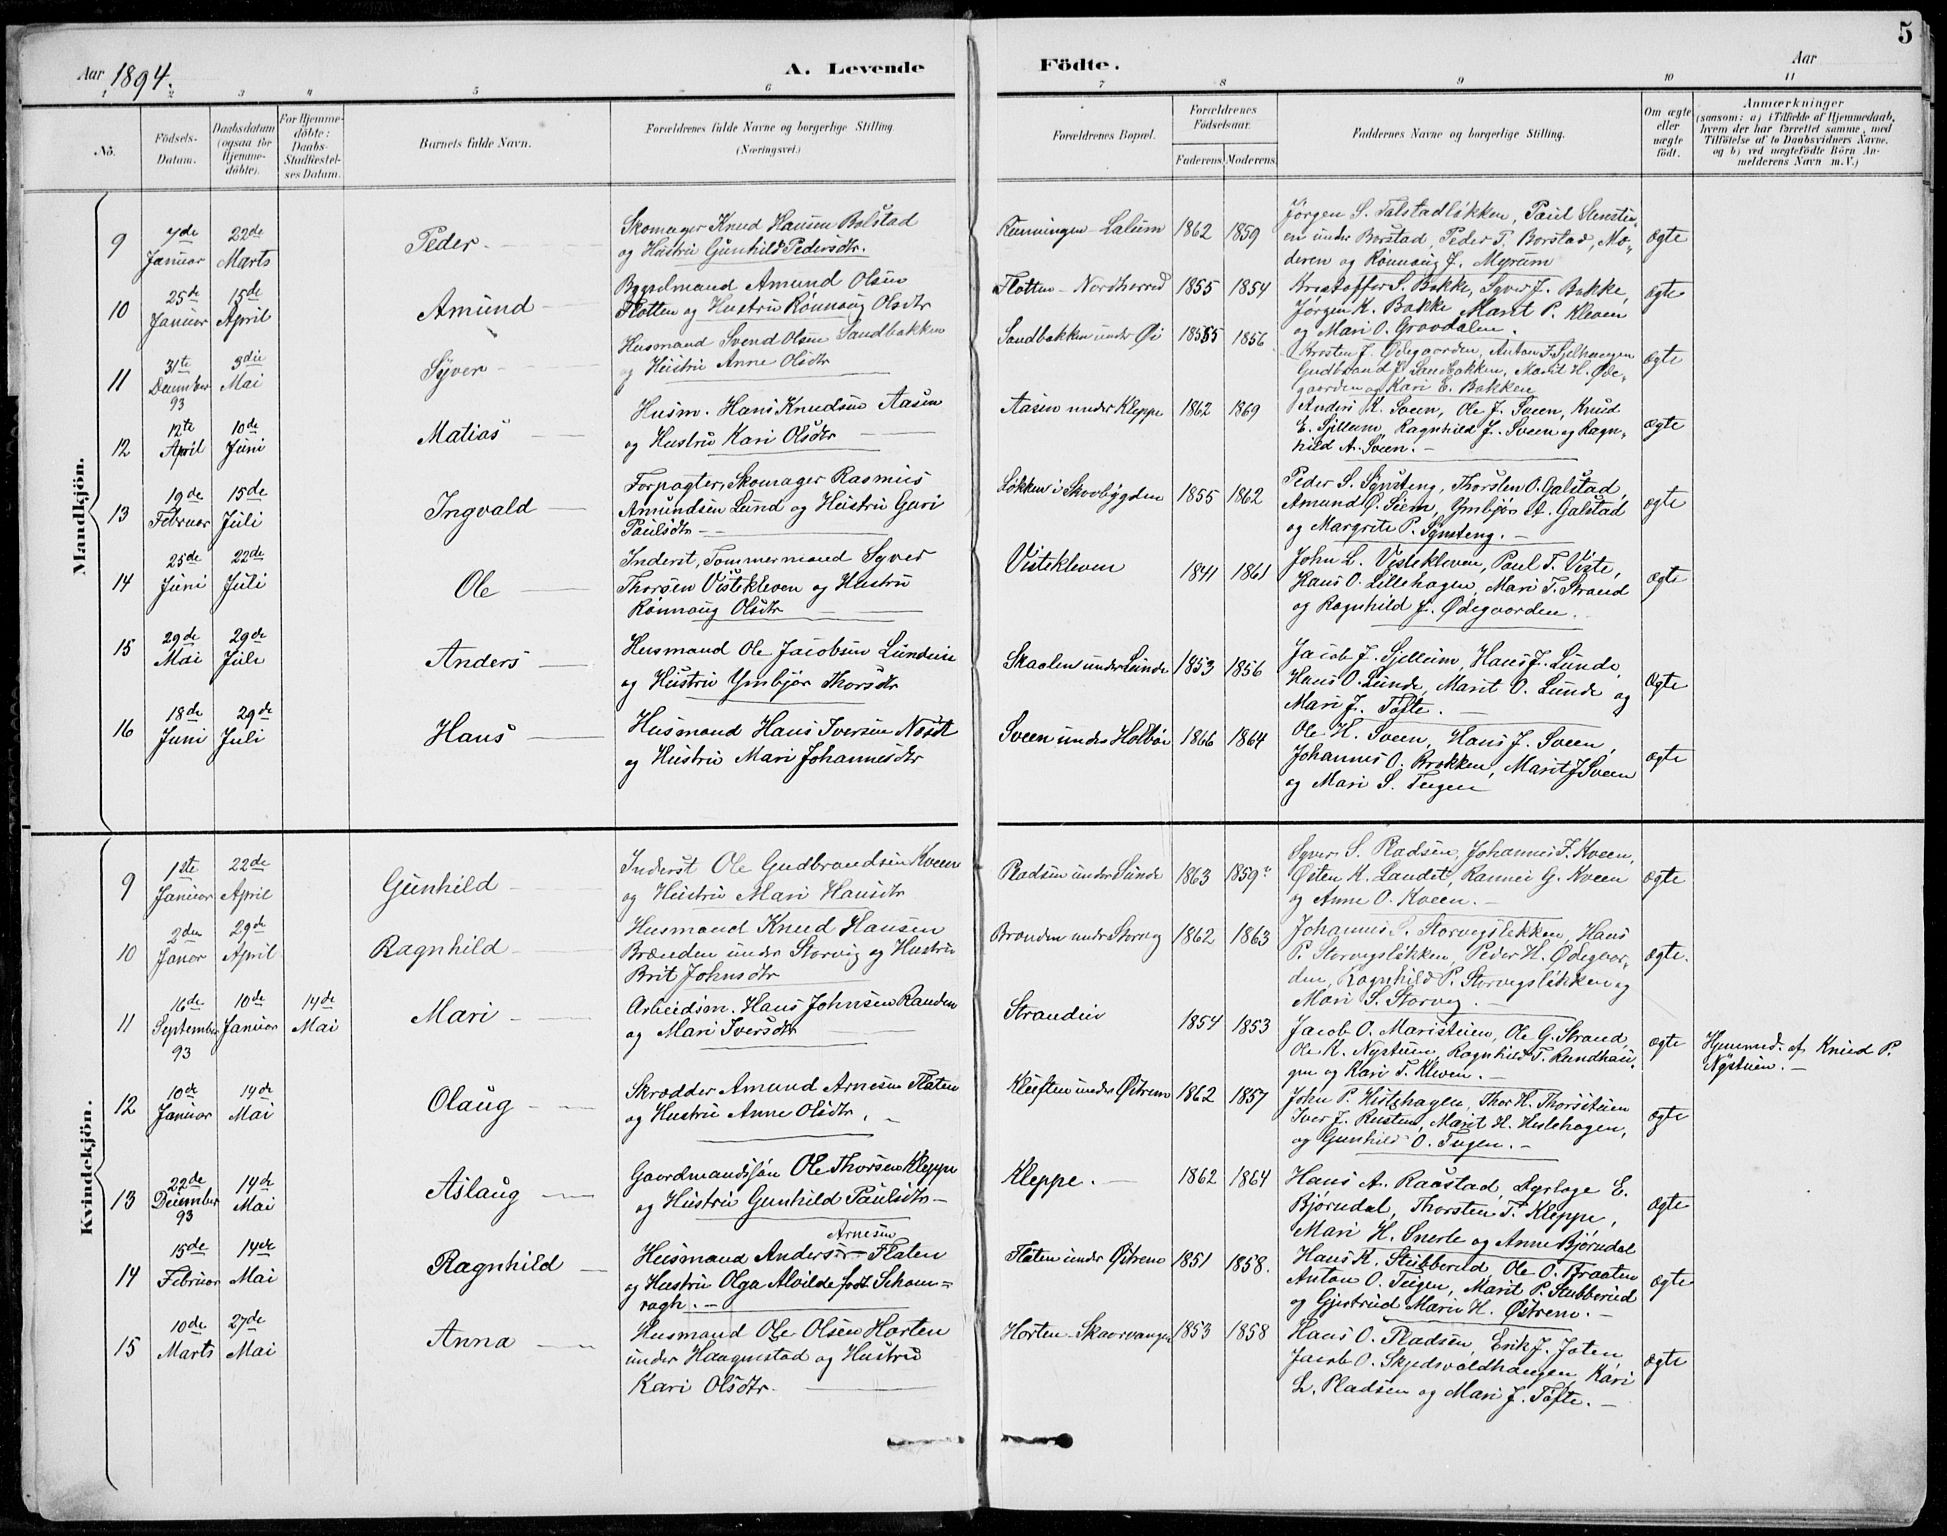 5
Aar 1894.
A. Levende Födte.
Aar
1 2 3 4 5 6 7 8 9 10 11
No.
Födsels-Datum.
Daabsdatum (ogsaa for Hjemme-döbte).
For Hjemme-döbte: Daabs-Stadfæstel-ses Datum.
Barnets fulde Navn.
Forældrenes fulde Navne og borgerlige Stilling.
(Næringsvei.)
Forældrenes Bopæl.
Forældrenes Födselsaar.
Faderens. Moderens.
Faddernes Navne og borgerlige Stilling.
Om ægte eller uægte födt.
Anmærkninger
(saasom: a) i Tilfælde af Hjemmedaab, hvem der har forrettet samme, med Tilföielse af to Daabsvidners Navne, og b) ved uægtefödte Börn Anmelderens Navn m. V.)
Mandkjön.
9 7de Januar 22de Marts Peder.
Skomager Knud Hansen Bolstad
og Hustru Gunhild Pedersdtr.
Lalum 1862 1859
Jørgen S. Talstadløkken, Paul
en under Borstad, Peder T. Borstad, Mo-
deren og Rønnaug J. Myrum
ægte
10 25de Januar 15de April Amund
Bygselmand Amund Olsen
Flotten og Hustru Rønnaug Olsdtr
Flotten - Nordherred 1855 1854
Kristoffer S. Bakke, Syver J. Bakke,
Jørgen K. Bakke Marit P. Kleven
og Mari O. Gravdalen.
ægte
11 31te December 93 3die Mai Syver
Husmand Svend Olsen Sandbakken
og Hustru Anne Olsdtr
Sandbakken under Øi 1855 1856
Kristen J. Ødegaarden, Anton F. Sjelhaugen
Gudbrand J. Sandbakken, Marit H. Øde-
gaarden og Kari E. Bakken
ægte
12 12te April 10de Juni Matias
Husm. Hans Knudsen Aasen
og Hustru Kari Olsdtr
Aasen under Kleppe 1862 1869
Anders K. Sveen, Ole J. Sveen, Knud
E. Sjellum, Ragnhild J. Sveen og Ragn-
hild A. Sveen.
ægte
13 19de Februar 15de Juli Ingvald
Forpagter, Skomager Rasmus
Amundsen Lund og Hustru Guri
Paulsdtr
Løkken i Skovbygden 1855 1862
Peder S. Synsteng, Thorsten O. Galstad,
Amund O. Siem, Ymbjør A. Galstad
og Margrete P. Synsteng.
ægte
14 25de Juni 22de Juli Ole
Inderst, Tømmermand Syver
Thorsen Vistekleven og Hustru
Rønnaug Olsdtr
Vistekleven 1841 1861
John L. Vistekleven, Paul T. Viste,
Hans O. Lillehagen, Mari T. Strand
og Ragnhild J. Ødegaarden.
ægte
15 29de Mai 29de Juli Anders
Husmand Ole Jacobsen Lundeie
og Hustru Ymbjør Thorsdtr
Skaalen under Lunde 1853 1856
Jacob J. Sjellum, Hans J. Lunde,
Hans O. Lunde, Marit O. Lunde og
Mari J. Tofte.
ægte
16 18de Juni 29de Juli Hans
Husmand Hans Iversen
og Hustru Mari Johannesdtr
Sveen under Holbø 1866 1864
Ole H. Sveen, Hans J. Sveen,
Johannes O. Brakken, Marit J Sveen
og Mari S. Teigen
ægte
Kvindekjön.
9 1ste Januar 22de April Gunhild
Inderst Ole Gudbrandsen Kveen
og Hustru Mari Hansdtr
Pladsen under Lunde 1863 1859
Syver S. Pladsen, Johannes F. Kveen,
Østen K. Landet, Rannei G. Kveen
og Anne O. Kveen.
ægte
10 2den Janar 29de April Ragnhild
Husmand Knud Hansen
Brænden under Storvig og Hustru
Brit Johnsdtr
Brænden under Storvig 1862 1863
Johannes S. Storvigsløkken, Hans
P. Storvigsløkken, Peder H. Ødegaar-
den, Ragnhild P. Storvigsløkken og
Mari S. Storvig.
ægte.
11 16de September 93 10de Januar 14de Mai Mari
Arbeidsm. Hans Johnsen Randen
og Mari Iversdtr
Strandeie 1854 1853
Jacob O. Maristuen, Ole G. Strand,
Ole K. Nystuen, Ragnhild T. Rundhau-
gen og Kari T. Kleven.
ægte
Hjemmed. af Knud P.
Nystuen.
12 10de Januar 14de Mai Olaug
Skrædder Amund Arnesen Flaten
og Hustru Anne Olsdtr.
Kløften under Østrem 1862 1857
John P. Histhagen, Thor H. Thorsstuen
Iver J. Rusten, Marit H. Heslehagen,
og Gunhild O. Teigen.
ægte
13 22de December 93 14de Mai Aslaug
Gaardmandssøn Ole Thorsen Kleppe
og Hustru Gunhild Paulsdtr
Kleppe. 1862 1864
Hans A. Raastad, Dyrlæge E.
Bjørndal, Thorsten T. Kleppe,
Mari H. Snerle og Anne Bjørndal
ægte
14 15de Februar 14de Mai Ragnhild
Arnesen
Husmand Anders Flaten
og Hustru Olga Alvilde født Scham-
ragh.
Flaten under Østrem 1851 1858.
Hans K. Stubberud, Ole O. Braaten
Anton O. Teigen, Marit P. Stubberud
og Gjertrud Marie H. Østrem.
ægte
15 10de Marts 27de Mai Anna
Husmand Ole Olsen Horten
under Haagenstad og Hustru
Kari Olsdtr.
Horten - Skaarvangen 1853 1858
Hans O. Pladsen, Erik J. Joten
Jacob O. Skjedsvoldhaugen, Kari
L. Pladsen og Mari J. Tofte.
ægte